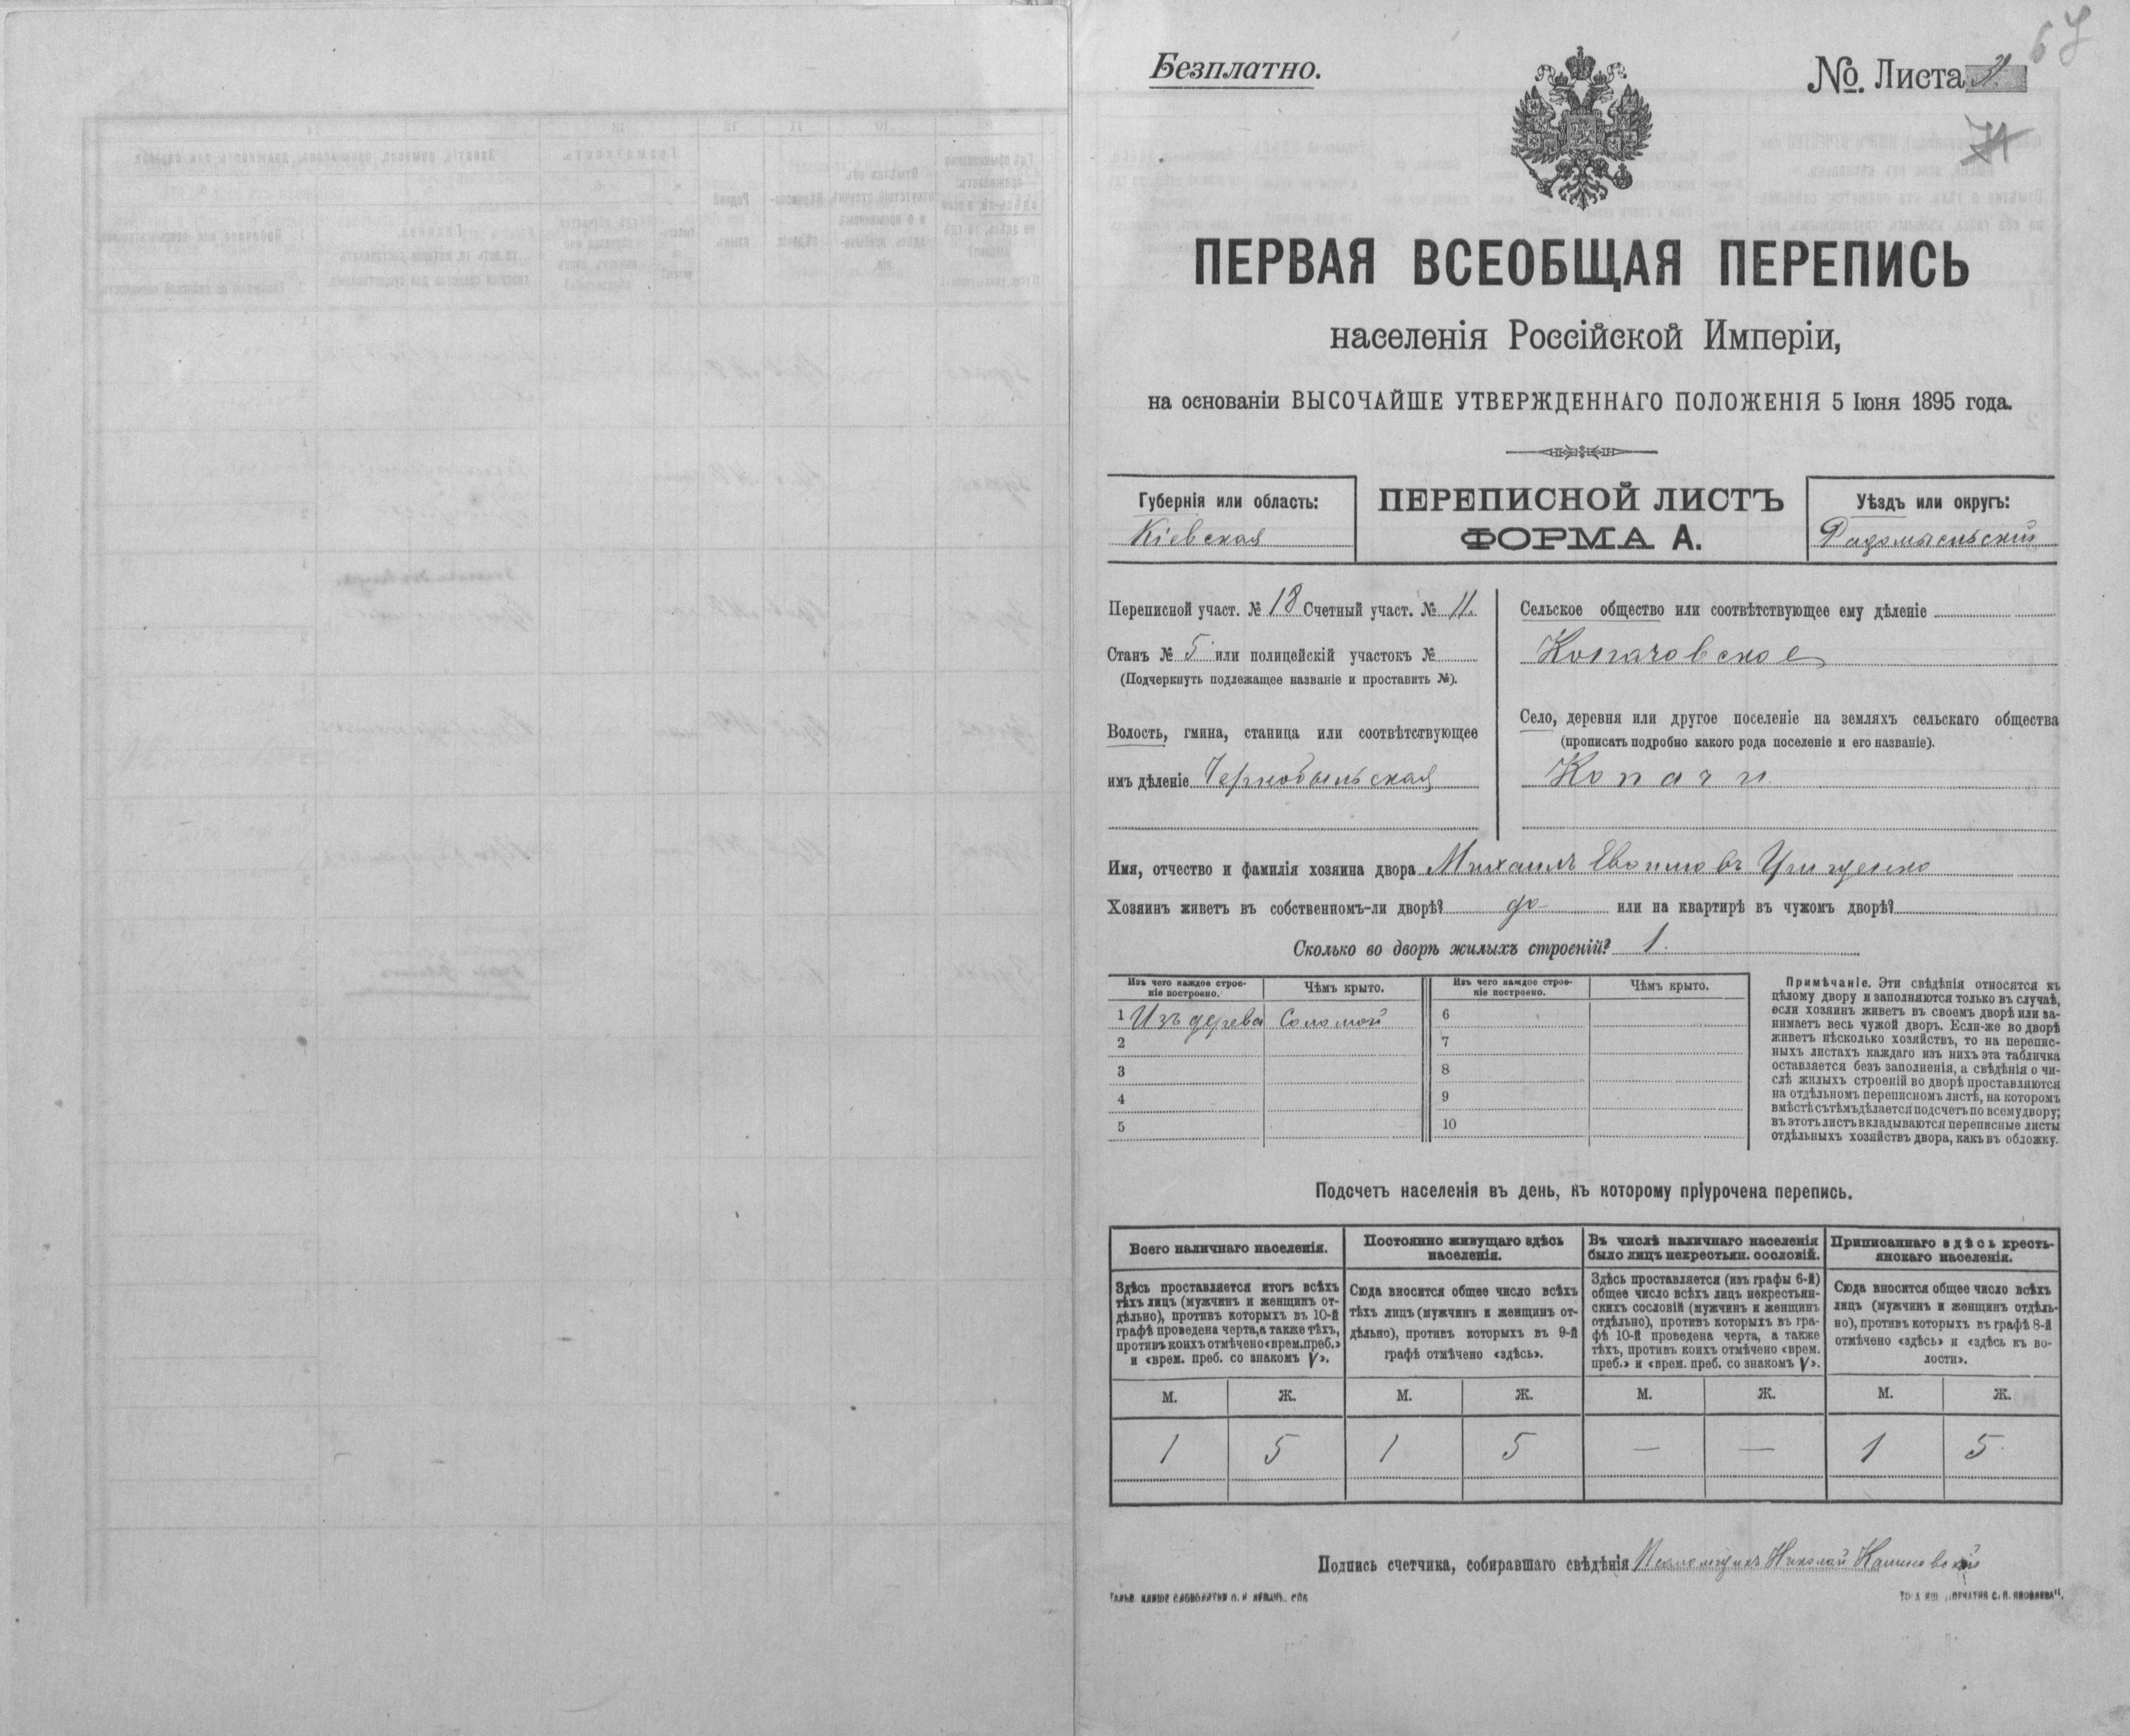 67
Безплатно.
№. Листа
ПЕРВАЯ ВСЕОБЩАЯ ПЕРЕПИСЬ
населенія Россійской Имперіи,
на основаніи ВЫСОЧАЙШЕ УТВЕРЖДЕННАГО ПОЛОЖЕНІЯ 5 Іюня 1895 года.
Губернія или область:
Кіевская
ПЕРЕПИСНОЙ ЛИСТЪ
ФОРМА А.
Уѣздъ или округъ:
Радомысльскій
Переписной участ. № 18 Счетный участ. № 11.
Станъ № 5 или полицейскій участокъ №
(Подчеркнуть подлежащее названіе и проставить №).
Волость, гмина, станица или соотвѣтствующее
имъ дѣленіе Чернобыльская
Сельское общество или соотвѣтствующее ему дѣленіе
Копачовское
Село, деревня или другое поселеніе на земляхъ сельскаго общества
(прописать подробно какого рода поселеніе и его названіе).
Копачи.
Имя, отчество и фамилія хозяина двора Михаилъ
Хозяинъ живетъ въ собственномъ-ли дворѣ? да или на квартирѣ въ чужомъ дворѣ?
Сколько во дворѣ жилыхъ строеній? 1.
Изъ чего каждое строе-
ніе построено.
Чѣмъ крыто.
Изъ чего каждое строе-
ніе построено.
Чѣмъ крыто.
1 Изъ дерева Соломой 6
2 7
3 8
4 9
5 10
Примѣчаніе. Эти свѣдѣнія относятся къ
цѣлому двору и заполняются только въ случаѣ,
если хозяинъ живетъ въ своемъ дворѣ или за-
нимаетъ весь чужой дворъ. Если-же во дворѣ
живетъ нѣсколько хозяйствъ, то на перепис-
ныхъ листахъ каждаго изъ нихъ эта табличка
оставляется безъ заполненія, а свѣдѣнія о чи-
слѣ жилыхъ строеній во дворѣ проставляются
на отдѣльномъ переписномъ листѣ, на которомъ
вмѣстѣ съ тѣмъ дѣлается подсчетъ по всему двору;
въ этотъ листъ вкладываются переписные листы
отдѣльныхъ хозяйствъ двора, какъ въ обложку.
Подсчетъ населенія въ день, къ которому пріурочена перепись.
Всего наличнаго населенія.
Здѣсь проставляется итогъ всѣхъ
тѣхъ лицъ (мужчинъ и женщинъ от-
дѣльно), противъ которыхъ въ 10-й
графѣ проведена черта, а также тѣхъ,
противъ коихъ отмѣчено «врем. преб.»
и «врем. преб. со знакомъ V».
Постоянно живущаго здѣсь
населенія.
Сюда вносится общее число всѣхъ
тѣхъ лицъ (мужчинъ и женщинъ от-
дѣльно), противъ которыхъ въ 9-й
графѣ отмѣчено «здѣсь».
Въ числѣ наличнаго населенія
было лицъ некрестьян. сословій.
Здѣсь проставляется (изъ графы 6-й)
общее число всѣхъ лицъ некрестьян-
скихъ сословій (мужчинъ и женщинъ
отдѣльно), противъ которыхъ въ гра-
фѣ 10-й проведена черта, а также
тѣхъ, противъ коихъ отмѣчено «врем.
преб.» и «врем. преб. со знакомъ V».
Приписаннаго здѣсь кресть-
янскаго населенія.
Сюда вносится общее число всѣхъ
лицъ (мужчинъ и женщинъ отдѣль-
но), противъ которыхъ въ графѣ 8-й
отмѣчено «здѣсь» и «здѣсь къ во-
лости».
М. Ж. М. Ж. М. Ж. М. Ж.
1 5 1 5 — — 1 5
Подпись счетчика, собиравшаго свѣдѣнія Псаломщикъ Николай